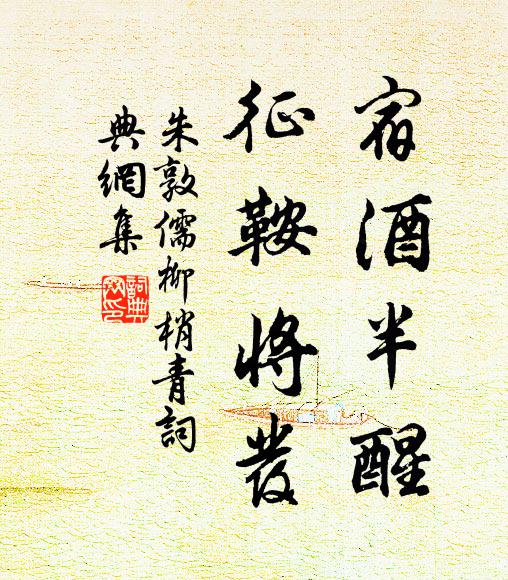 宿酒半醒
征鞍將發
朱敦儒柳梢青詞
典網集
詞典網印